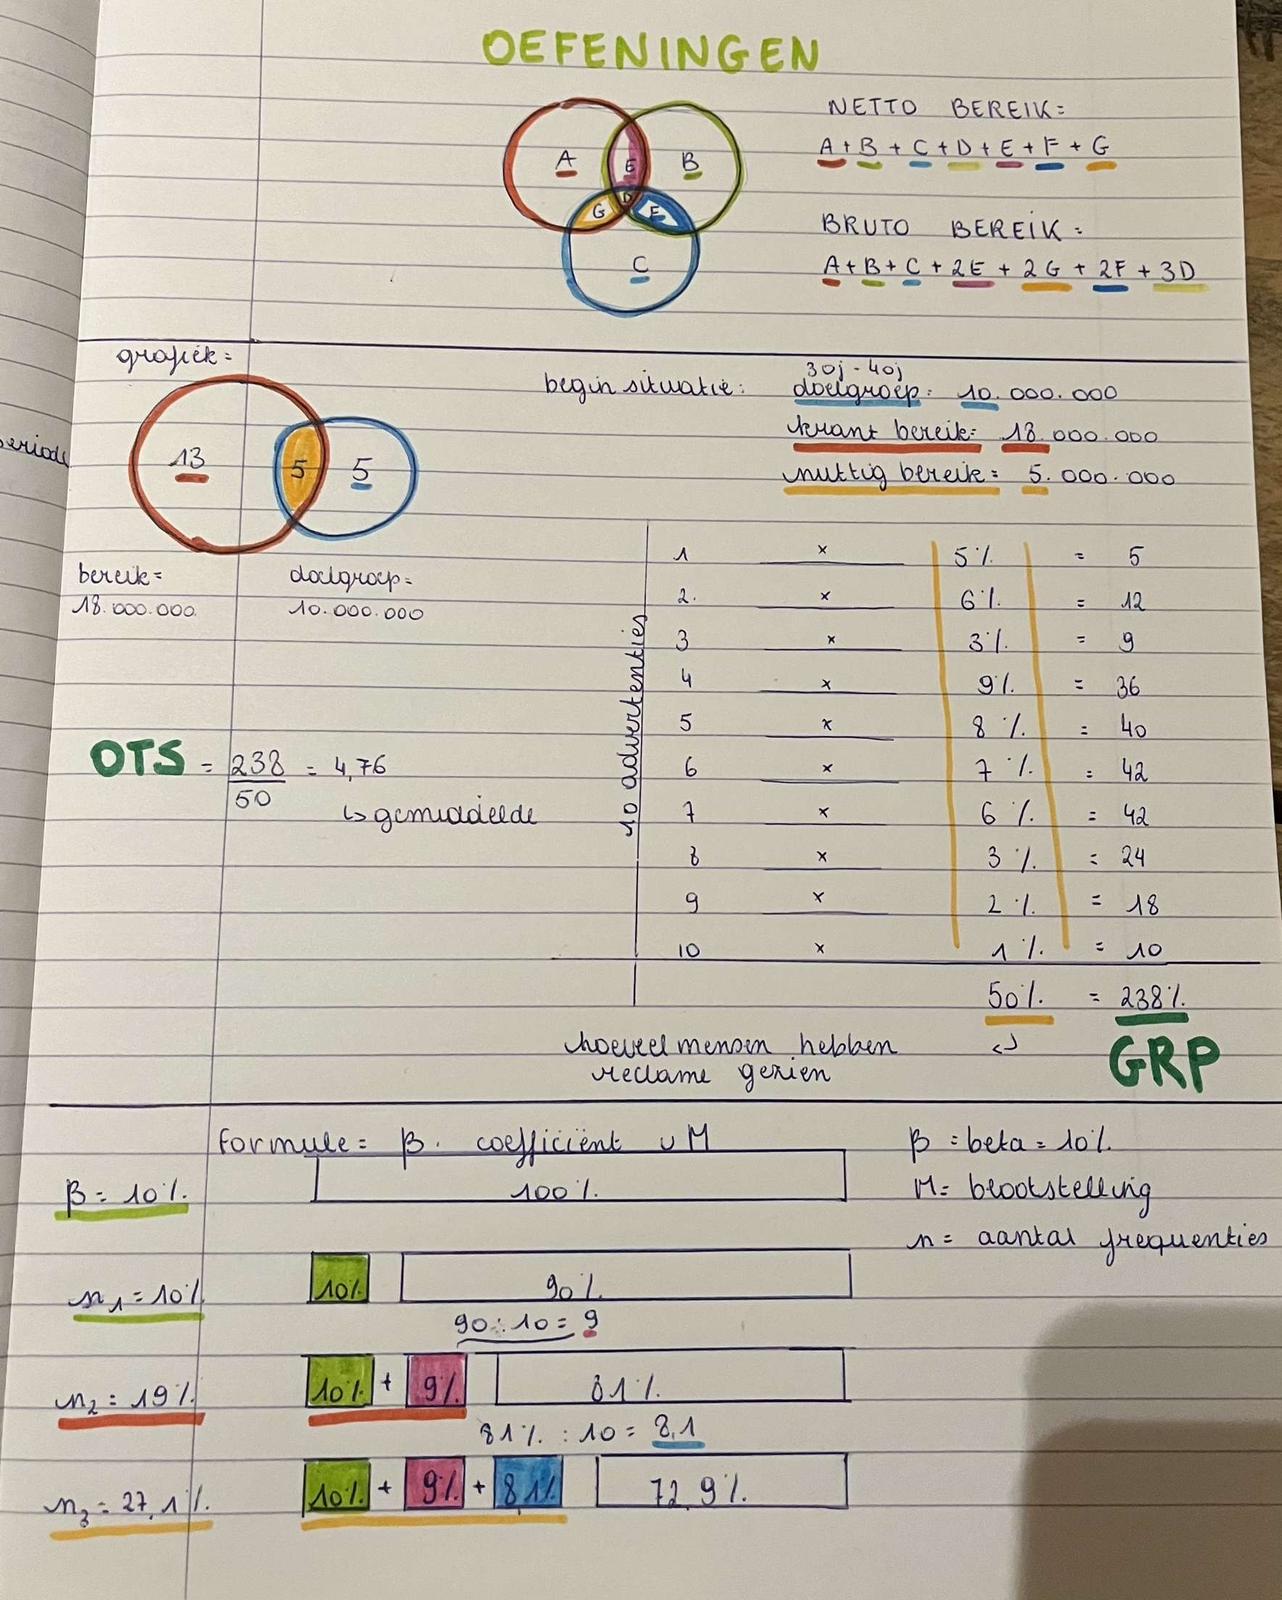 OEFENINGEN
NETTO BEREIK =
A + B + C + D + E + F + G
BRUTO BEREIK =
A + B + C + 2E + 2G + 2F + 3D
A
E
B
D
G
F
C
grafiek =
13
5
5
bereik =
18.000.000
doelgroep =
10.000.000
begin situatie:
30j - 40j
doelgroep: 10.000.000
krant bereik: 18.000.000
nuttig bereik = 5.000.000
10 advertenties
1 x 5% = 5
2. x 6% = 12
3 x 3% = 9
4 x 9% = 36
5 x 8% = 40
6 x 7% = 42
7 x 6% = 42
8 x 3% = 24
9 x 2% = 18
10 x 1% = 10
50% = 238%
GRP
hoeveel mensen hebben
reclame gezien
OTS = 238/50 = 4,76
↳ gemiddelde
formule = β. coefficiënt v M
β = beta = 10%
M = blootstelling
n = aantal frequenties
β = 10%
100%
n1 = 10%
10%
90%
90 : 10 = 9
n2 = 19%
10% + 9%
81%
81% : 10 = 8,1
n3 = 27,1%
10% + 9% + 8,1%
72,9%